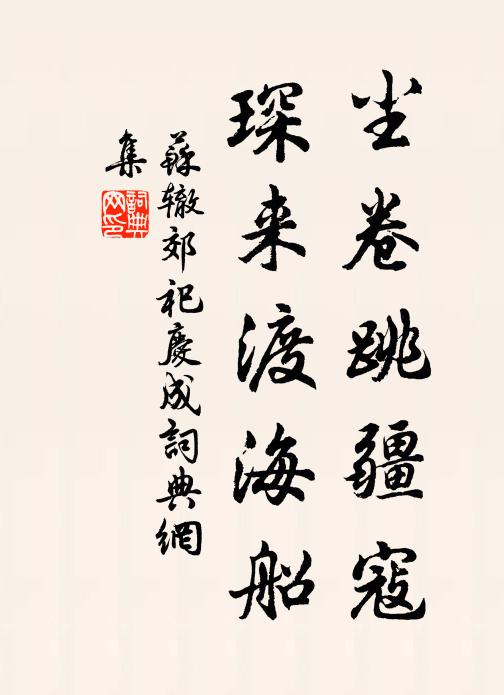 尘卷跳疆寇
琛来渡海船
蘇辙郊祀慶成詞典網
集
詞典網印